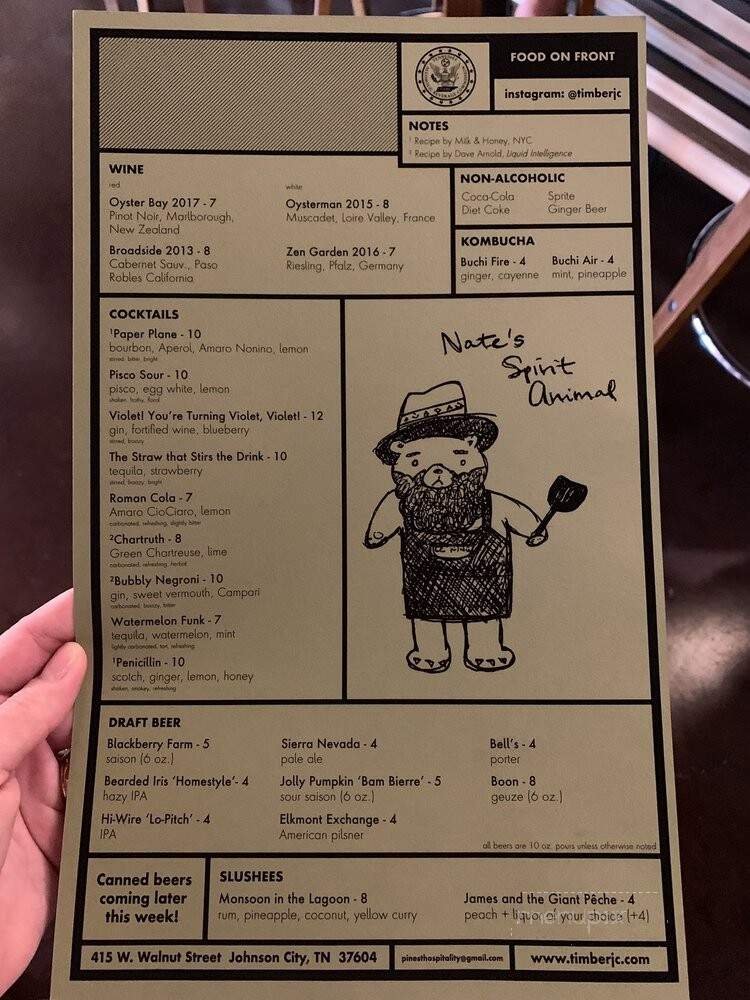 FOOD ON FRONT
instagram: @timberjc
NOTES
¹ Recipe by Milk & Honey, NYC
² Recipe by Dave Arnold, Liquid Intelligence
WINE
red
Oyster Bay 2017 - 7
Pinot Noir, Marlborough,
New Zealand
Broadside 2013 - 8
Cabernet Sauv., Paso
Robles California
white
Oysterman 2015 - 8
Muscadet, Loire Valley, France
Zen Garden 2016 - 7
Riesling, Pfalz, Germany
NON-ALCOHOLIC
Coca-Cola
Diet Coke
Sprite
Ginger Beer
KOMBUCHA
Buchi Fire - 4
ginger, cayenne
Buchi Air - 4
mint, pineapple
COCKTAILS
¹Paper Plane - 10
bourbon, Aperol, Amaro Nonino, lemon
stirred, bitter, bright
Pisco Sour - 10
pisco, egg white, lemon
shaken, frothy, floral
Violet! You're Turning Violet, Violet! - 12
gin, fortified wine, blueberry
stirred, boozy
The Straw that Stirs the Drink - 10
tequila, strawberry
stirred, boozy, bright
Roman Cola - 7
Amaro CioCiaro, lemon
carbonated, refreshing, slightly bitter
²Chartruth - 8
Green Chartreuse, lime
carbonated, refreshing, herbal
²Bubbly Negroni - 10
gin, sweet vermouth, Campari
carbonated, boozy, bitter
Watermelon Funk - 7
tequila, watermelon, mint
lightly carbonated, tart, refreshing
¹Penicillin - 10
scotch, ginger, lemon, honey
shaken, smokey, refreshing
Nate's
Spirit
Animal
DRAFT BEER
Blackberry Farm - 5
saison (6 oz.)
Bearded Iris 'Homestyle'- 4
hazy IPA
Hi-Wire 'Lo-Pitch' - 4
IPA
Sierra Nevada - 4
pale ale
Jolly Pumpkin 'Bam Bierre' - 5
sour saison (6 oz.)
Elkmont Exchange - 4
American pilsner
Bell's - 4
porter
Boon - 8
geuze (6 oz.)
all beers are 10 oz. pours unless otherwise noted
Canned beers
coming later
this week!
SLUSHEES
Monsoon in the Lagoon - 8
rum, pineapple, coconut, yellow curry
James and the Giant Pêche - 4
peach + liquor of your choice (+4)
415 W. Walnut Street Johnson City, TN 37604
pinesthospitality@gmail.com
www.timberjc.com